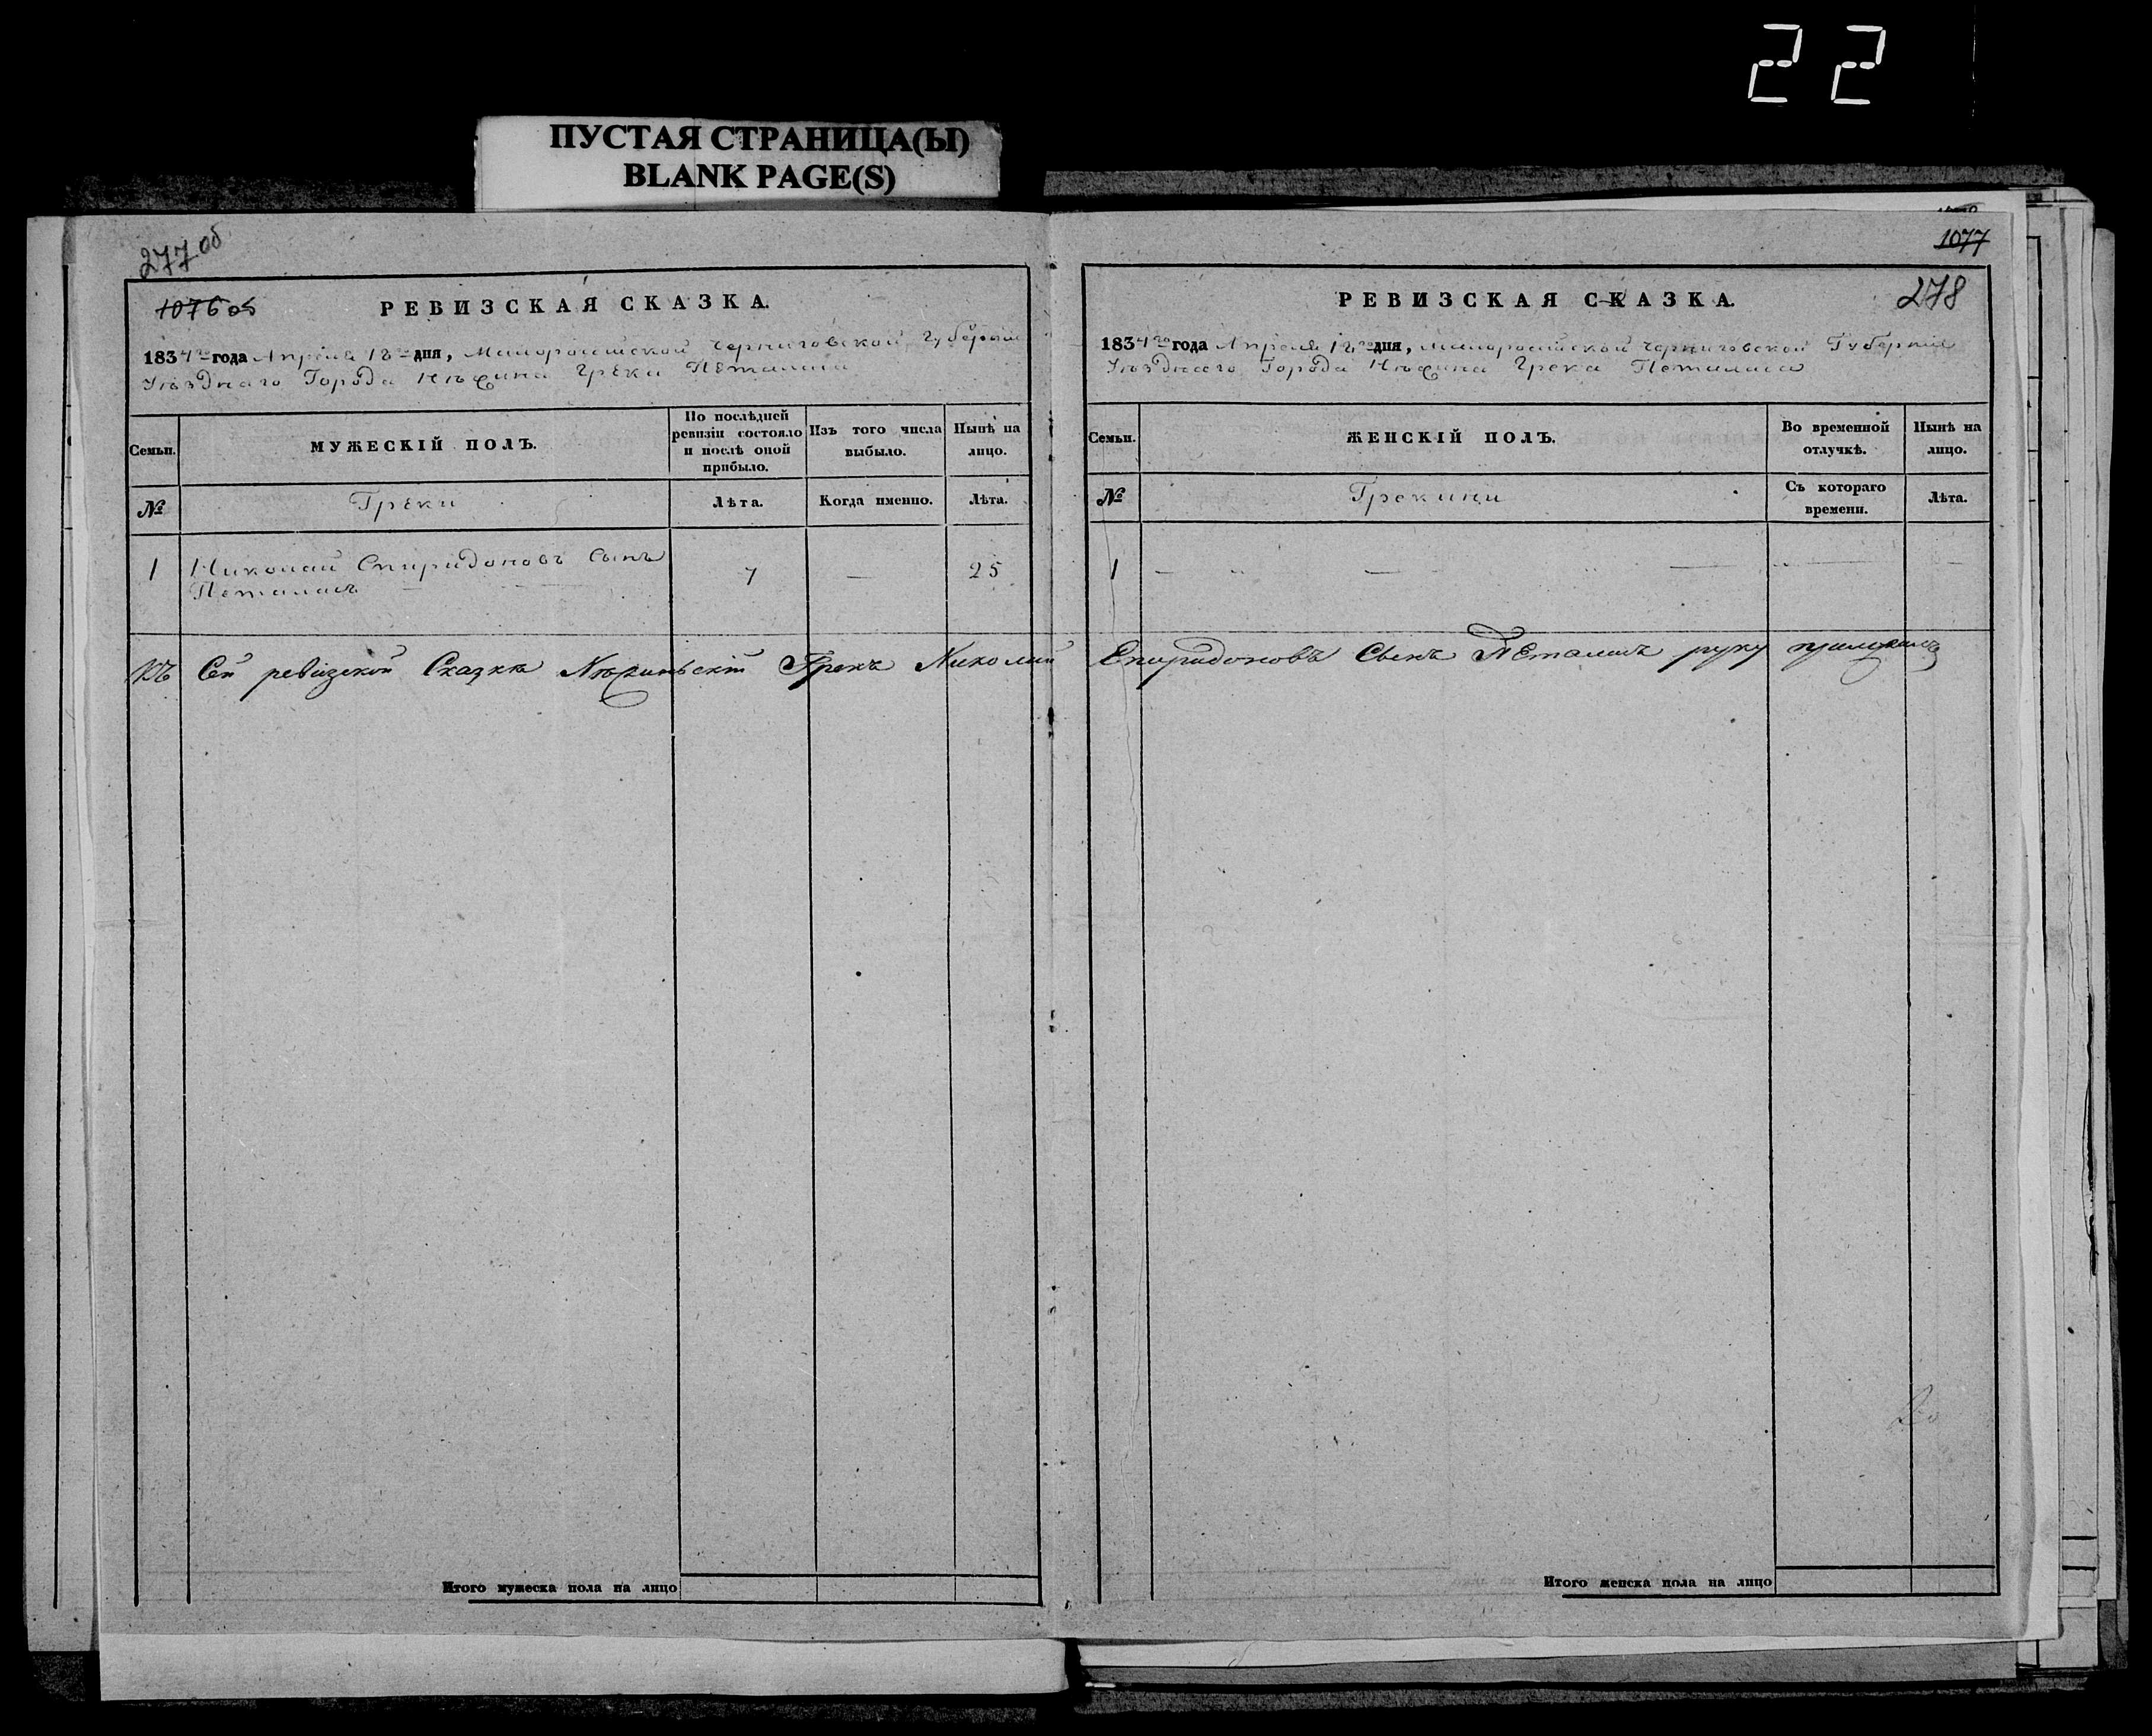 22
ПУСТАЯ СТРАНИЦА(Ы)
BLANK PAGE(S)
277 об
1076 об
РЕВИЗСКАЯ СКАЗКА.
1834го года Апреля 18го дня, Малоросiйской Черниговской Губернiи
Уѣзднаго Города Нѣжина Грека Петаласа
Семьи.
МУЖЕСКIЙ ПОЛЪ.
По послѣдней ревизiи состояло и послѣ оной прибыло.
Изъ того числа выбыло.
Нынѣ на лицо.
№
Греки
Лѣта.
Когда именно.
Лѣта.
1
Николай Спиридоновъ Сынъ
Петаласъ
7
—
25
1077
278
РЕВИЗСКАЯ СКАЗКА.
1834го года Апреля 18го дня, Малоросiйской Черниговской Губернiи
Уѣзднаго Города Нѣжина Грека Петаласа
Семьи.
ЖЕНСКIЙ ПОЛЪ.
Во временной отлучкѣ.
Нынѣ на лицо.
№
Грекини
Съ котораго времени.
Лѣта.
1
Къ Сей ревизской Сказкѣ Нѣжинскiй Грекъ Николай Спиридоновъ Сынъ Петаласъ руку приложилъ
Итого мужеска пола на лицо
Итого женска пола на лицо